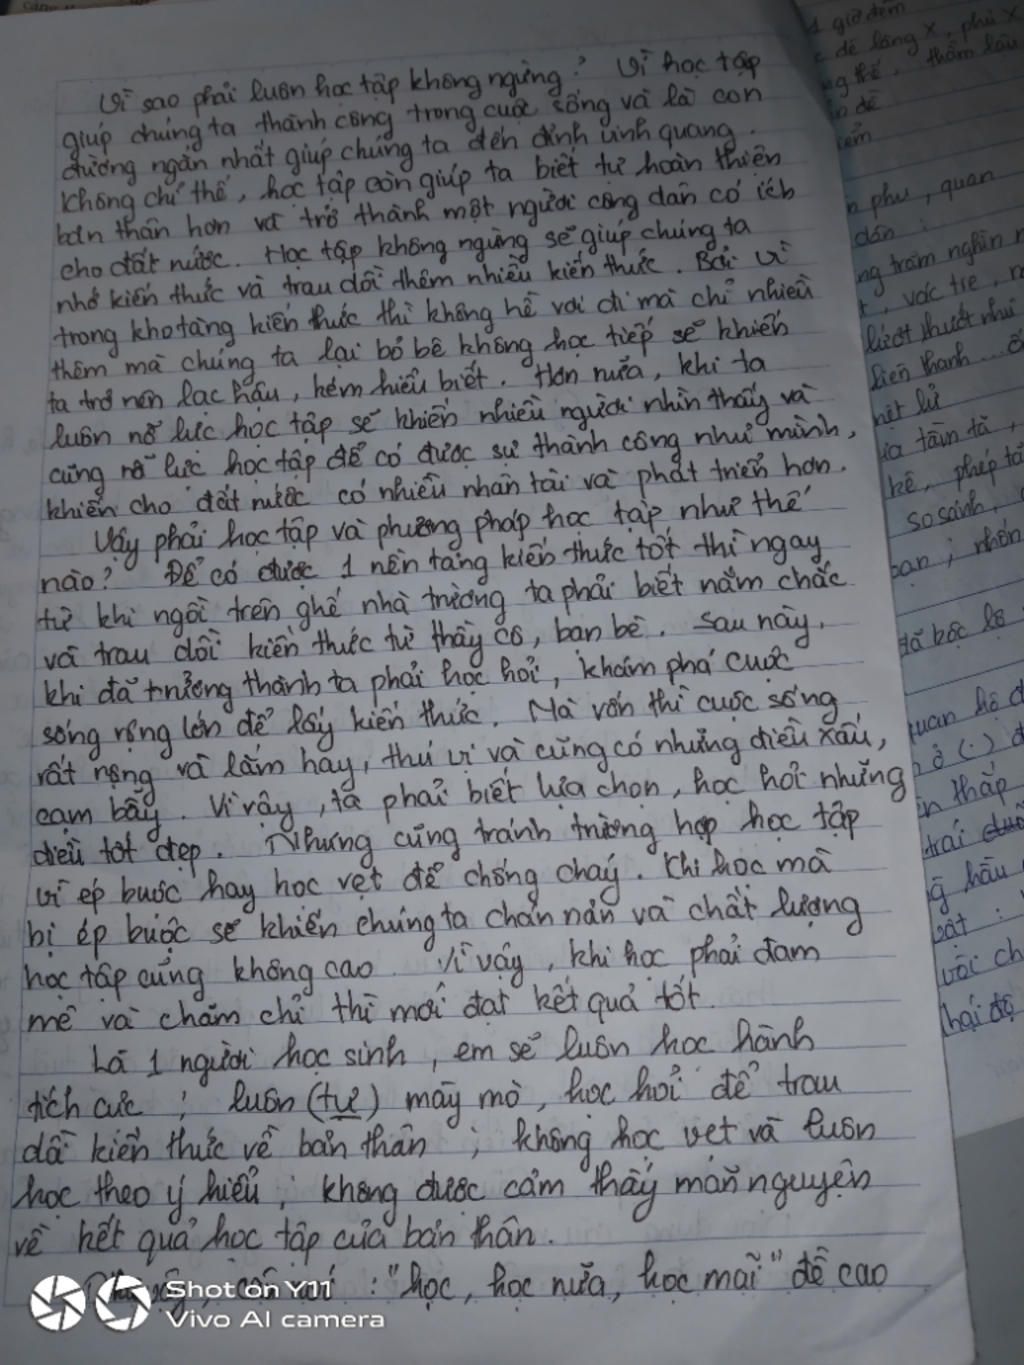 Vì sao phải luôn học tập không ngừng? Vì học tập
giúp chúng ta thành công trong cuộc sống và là con
đường ngắn nhất giúp chúng ta đến đỉnh vinh quang.
Không chỉ thế, học tập còn giúp ta biết tự hoàn thiện
bản thân hơn và trở thành một người công dân có ích
cho đất nước. Học tập không ngừng sẽ giúp chúng ta
nhớ kiến thức và trau dồi thêm nhiều kiến thức. Bởi vì
trong kho tàng kiến thức thì không hề vơi đi mà chỉ nhiều
thêm mà chúng ta lại bỏ bê không học tiếp sẽ khiến
ta trở nên lạc hậu, kém hiểu biết. Hơn nữa, khi ta
luôn nỗ lực học tập sẽ khiến nhiều người nhìn thấy và
cũng nỗ lực học tập để có được sự thành công như mình,
khiến cho đất nước có nhiều nhân tài và phát triển hơn.
Vậy phải học tập và phương pháp học tập như thế
nào? Để có được 1 nền tảng kiến thức tốt thì ngay
từ khi ngồi trên ghế nhà trường ta phải biết nắm chắc
và trau dồi kiến thức từ thầy cô, bạn bè. Sau này,
khi đã trưởng thành ta phải học hỏi, khám phá cuộc
sống rộng lớn để lấy kiến thức. Mà vốn thì cuộc sống
rất rộng và lắm hay, thú vị và cũng có những điều xấu,
cạm bẫy. Vì vậy, ta phải biết lựa chọn, học hỏi những
điều tốt đẹp. Nhưng cũng tránh trường hợp học tập
vì ép buộc hay học vẹt để chống cháy. Khi học mà
bị ép buộc sẽ khiến chúng ta chán nản và chất lượng
học tập cũng không cao. Vì vậy, khi học phải đam
mê và chăm chỉ thì mới đạt kết quả tốt.
Là 1 người học sinh, em sẽ luôn học hành
tích cực; luôn (tự) mày mò, học hỏi để trau
dồi kiến thức về bản thân; không học vẹt và luôn
học theo ý hiểu; không được cảm thấy mãn nguyện
về kết quả học tập của bản thân.
: "học, học nữa, học mãi" đề cao
Shot on Y11
Vivo AI camera
1 giờ đêm
phu, quan
trăm nghìn
vác tre,
lướt thướt như
tầm tã,
phép
so sánh,
bộc lộ
thấp
hầu